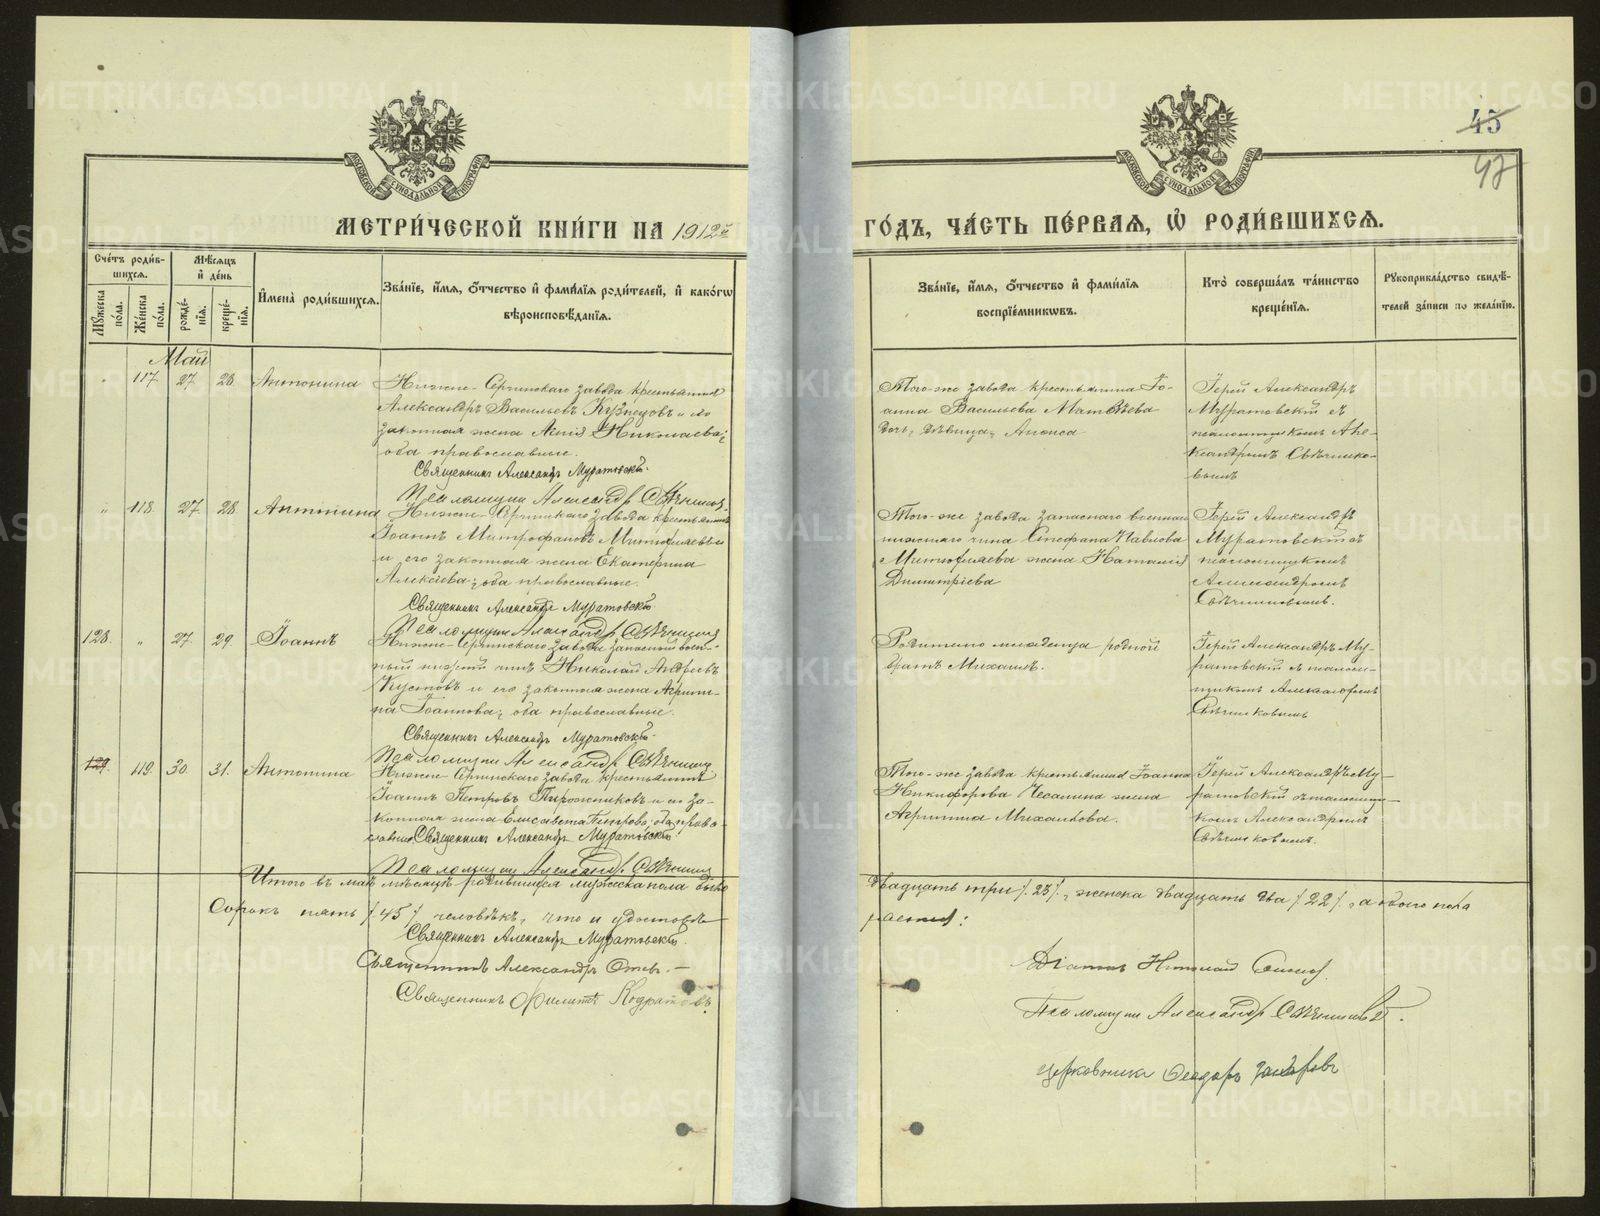 45
47
МОСКОВСКОЙ СѴНОДАЛЬНОЙ ТИПОГРАФІИ
МОСКОВСКОЙ СѴНОДАЛЬНОЙ ТИПОГРАФІИ
МЕТРИ́ЧЕСКОЙ КНИ́ГИ НА 1912й ГО́ДЪ, ЧА́СТЬ ПЕ́РВАѦ, Ѡ҆ РОДИ́ВШИХСѦ.
Сче́тъ роди́в-
шихся.
Мѣ́сяцъ
и҆ де́нь
Му́жеска
по́ла.
Же́нска
по́ла.
рожде́-
нїя.
креще́-
нїя.
И҆мена̀ роди́вшихся.
Зва́нїе, и҆́мя, о҆́тчество и҆ фами́лїя роди́телей, и҆ како́гѡ
вѣроисповѣ́данїя.
Зва́нїе, и҆́мя, о҆́тчество и҆ фами́лїя
воспрїе́мникѡвъ.
Кто̀ соверша́лъ та́инство
креще́нїя.
Рꙋкоприкла́дство свидѣ́-
телей за́писи по жела́нїю.
Май
" 117 27 28 Антонина
Нижне-Сергинскаго завода крестьянинъ
Александръ Васильевъ Кузнецовъ и его
законная жена Лидія Николаева;
оба православные.
Священникъ Александръ Муратовскій.
Псаломщикъ Александръ Свѣчниковъ
Того-же завода крестьянина Іо-
анна Васильева Матвѣева
дочь, дѣвица, Аниса
Іерей Александръ
Муратовскій съ
псаломщикомъ Але-
ксандромъ Свѣчнико-
вымъ
" 118 27 28 Антонина
Нижне-Сергинскаго завода крестьянинъ
Іоаннъ Митрофановъ
и его законная жена Екатерина
Алексіева; оба православные.
Священникъ Александръ Муратовскій
Псаломщикъ Александръ Свѣчниковъ
Того-же завода запаснаго военнаго
нижняго чина Стефана Павлова
жена Наталія
Димитріева
Іерей Александръ
Муратовскій съ
псаломщикомъ
Александромъ
Свѣчниковымъ.
128. " 27 29. Іоаннъ
Нижне-Сергинскаго завода запасный воен-
ный нижній чинъ Николай Андреевъ
Кустовъ и его законная жена Агрипи-
на Іоаннова; оба православные.
Священникъ Александръ Муратовскій.
Псаломщикъ Александръ Свѣчниковъ
Родителю младенца родной
братъ Михаилъ.
Іерей Александръ Му-
ратовскій съ псалом-
щикомъ Александромъ
Свѣчниковымъ
129. 119. 30. 31. Антонина
Нижне-Сергинскаго завода крестьянинъ
Іоаннъ Петровъ Пирожниковъ и его за-
конная жена Елисавета Петрова; оба право-
славные Священникъ Александръ Муратовскій
Псаломщикъ Александръ Свѣчниковъ
Того-же завода крестьянина Іоанна
Никифорова Чесалина жена
Агрипина Михаилова.
Іерей Александръ Му-
ратовскій съ псаломщи-
комъ Александромъ
Свѣчниковымъ.
Итого въ маѣ мѣсяцѣ родившихся мужеска пола было двадцать три /23/, женска двадцать два /22/, а обоего пола
сорокъ пять /45/ человѣкъ, что и удостовѣ-
ряемъ:
Священникъ Александръ Муратовскій.
Священникъ Александръ
Священникъ Филиппъ Кодратовъ.
Діаконъ Николай
Псаломщикъ Александръ Свѣчниковъ.
Ѳеодоръ
METRIKI.GASO-URAL.RU